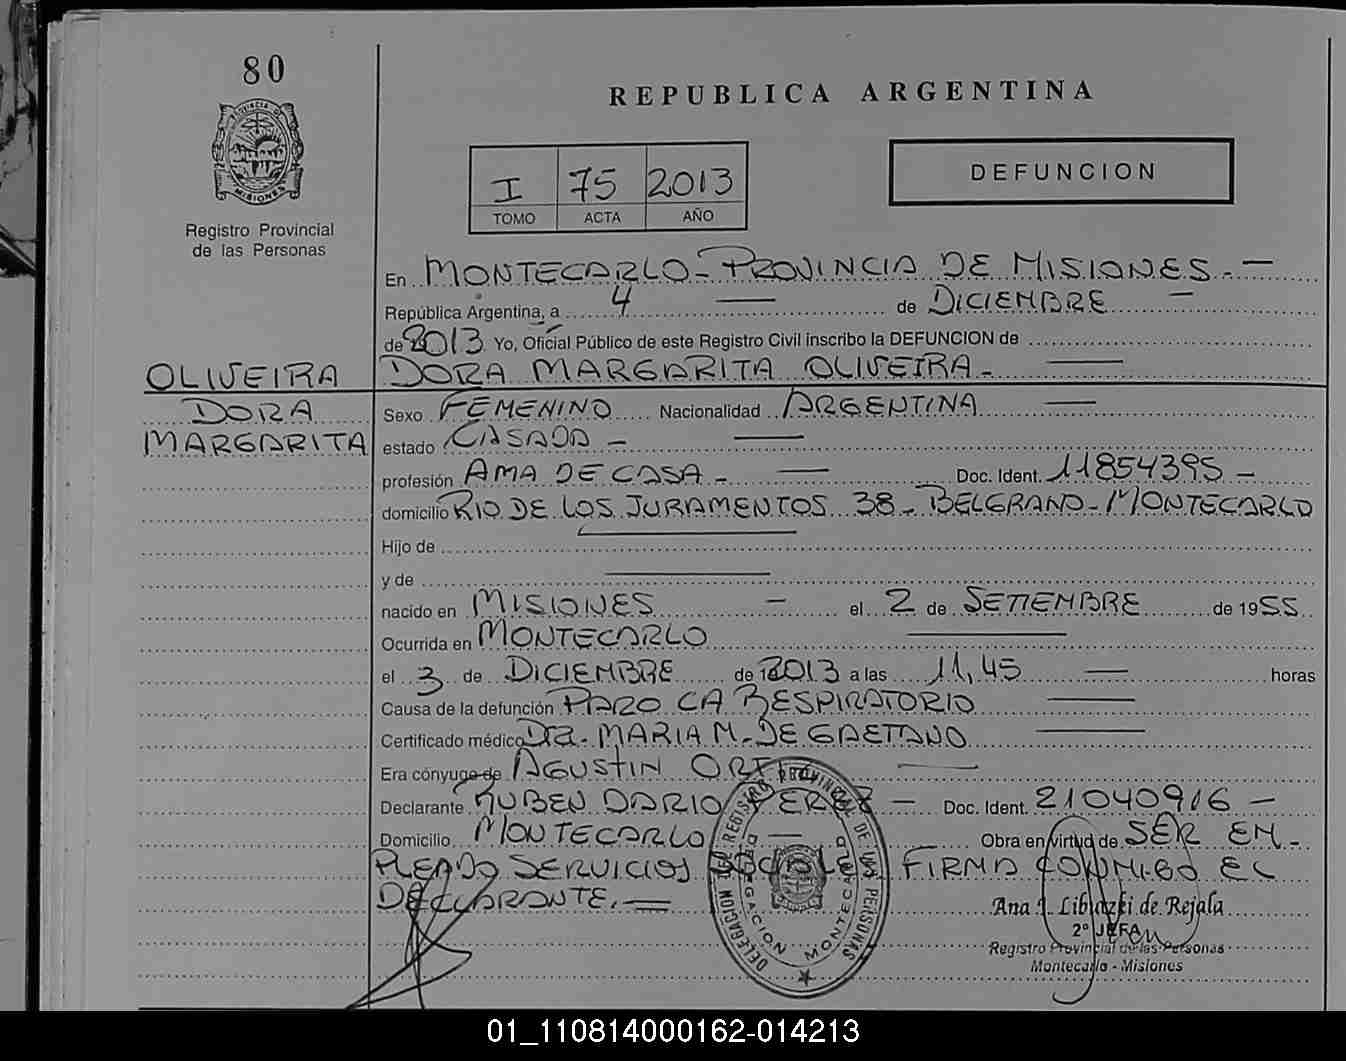 80
PROVINCIA DE
MISIONES
Registro Provincial
de las Personas
REPUBLICA ARGENTINA
I 75 2013
TOMO ACTA AÑO
DEFUNCION
En MONTECARLO - PROVINCIA DE MISIONES. —
República Argentina, a 4 — de DICIEMBRE —
de 2013. Yo, Oficial Público de este Registro Civil inscribo la DEFUNCION de
OLIVEIRA DORA MARGARITA OLIVEIRA. —
DORA Sexo FEMENINO Nacionalidad ARGENTINA —
MARGARITA estado CASADA - —
profesión AMA DE CASA - — Doc. Ident. 11854395 -
domicilio RIO DE LOS JURAMENTOS 38 - BELGRANO - MONTECARLO
Hijo de —
y de —
nacido en MISIONES - el 2 de SETIEMBRE de 1955
Ocurrida en MONTECARLO —
el 3 de DICIEMBRE de 2013 a las 11,45 — horas
Causa de la defunción PARO CA RESPIRATORIO —
Certificado médico Dra. MARIA M. DE GAETANO —
Era cónyuge de AGUSTIN —
Declarante RUBEN DARIO - Doc. Ident. 21040916 -
Domicilio MONTECARLO — Obra en virtud de SER EM-
PLEADO SERVICIOS SOCIALES FIRMA CONMIGO EL
DECLARANTE. —
DELEGACION DEL REGISTRO PROVINCIAL DE LAS PERSONAS
DELEGACION MONTECARLO
Ana I. Libutzki de Rejala
2º JEFA
Registro Provincial de las Personas
Montecarlo - Misiones
01_110814000162-014213